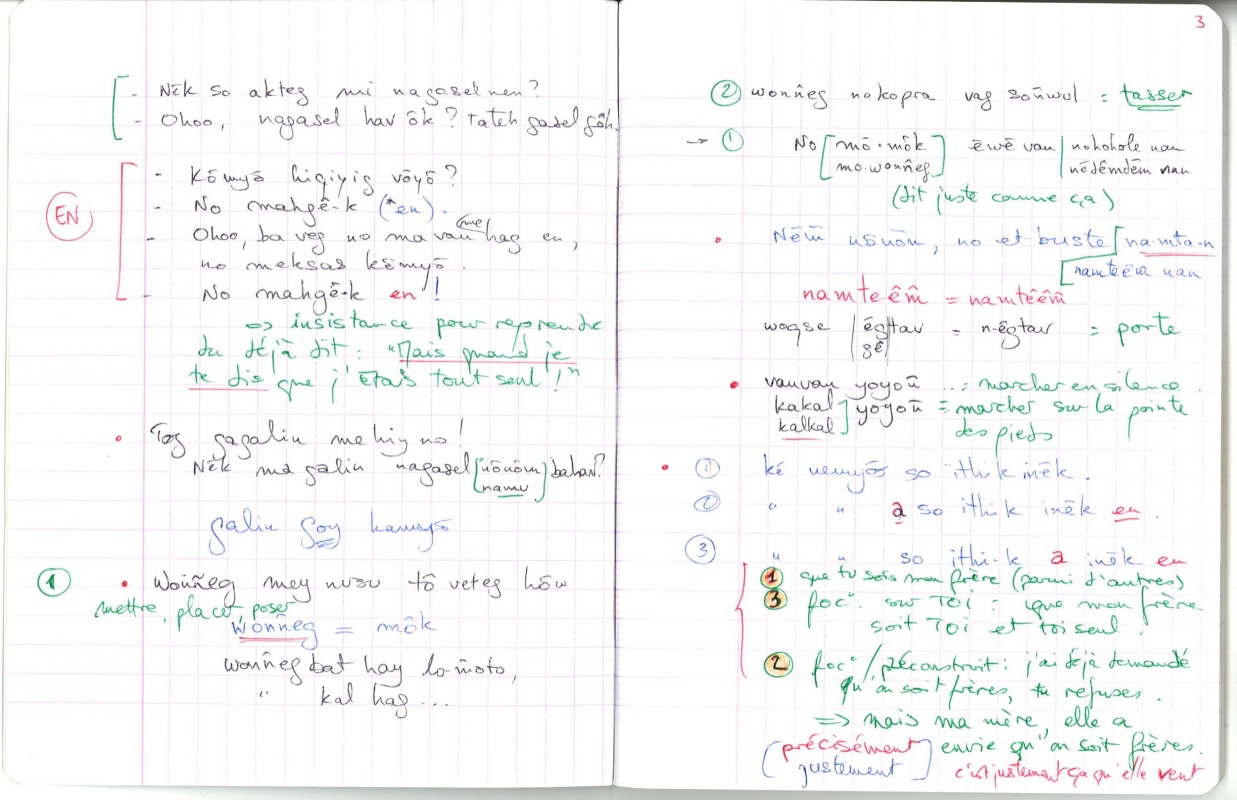 - Nēk so akteg mi nagasel nen?
- Ohoo, nagasel hav ōk? Tateh gasel gōh.
EN
- Kōmyō higiyig vōyō?
- No mahgē-k (*en).
- Ohoo, ba veg no ma van (me) hag en,
no meksas kōmyō.
- No mahgē-k en!
=> insistance pour reprendre
du déjà dit : "Mais quand je
te dis que j'étais tout seul !"
• Tog gagalin me hiy no!
Nēk ma galin nagasel [nōnōm / namu] bahav?
galin goy kamyō
① • Woññeg mey nusu tō veteg hōw
mettre, placer, poser
woññeg = mōk
woññeg bat hay lo-moto,
" kal hag ...
3
② woññeg nokopra vag soñwul = tasser
→ ① No [mō-mōk / mo-woññeg] ēwē van | nohohole nan / nēdēmdēm nan
(dit juste comme ça)
• Nēm̄ nōnōm, no et buste [na-mta-n
[namteēm̄ nan
namteēm̄ = namtēēm̄
woqse | ēgtav = n-ēgtav = porte
gē
• vanvan yoyoñ ... = marcher en silence.
kakal / kalkal] yoyoñ = marcher sur la pointe
des pieds
• ① kē nemyōs so ithik inēk.
② " " a so ithik inēk en.
③ " " so ithi-k a inēk en
① que tu sois mon frère (parmi d'autres)
③ foc°. sur TOI : que mon frère
soit TOI et toi seul.
② foc°/préconstruit : j'ai déjà demandé
qu'on soit frères, tu refuses.
=> mais ma mère, elle a
(précisément / justement) envie qu'on soit frères.
c'est justement ça qu'elle veut